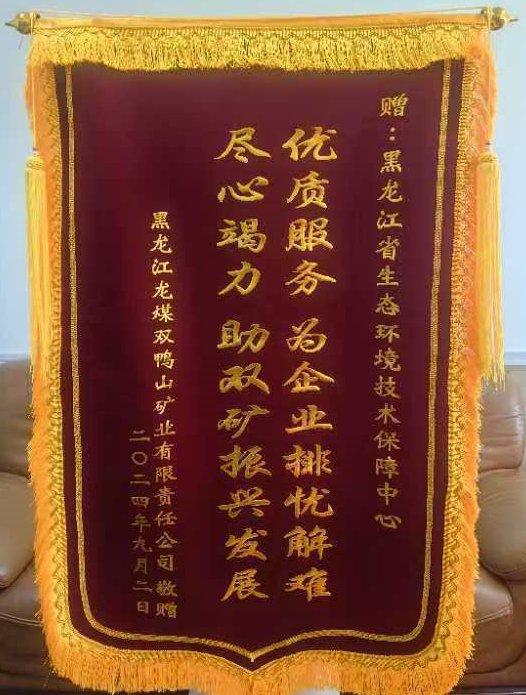 赠：黑龙江省生态环境技术保障中心
优质服务 为企业排忧解难
尽心竭力 助双矿振兴发展
黑龙江龙煤双鸭山矿业有限责任公司 敬赠
二〇二四年九月二日